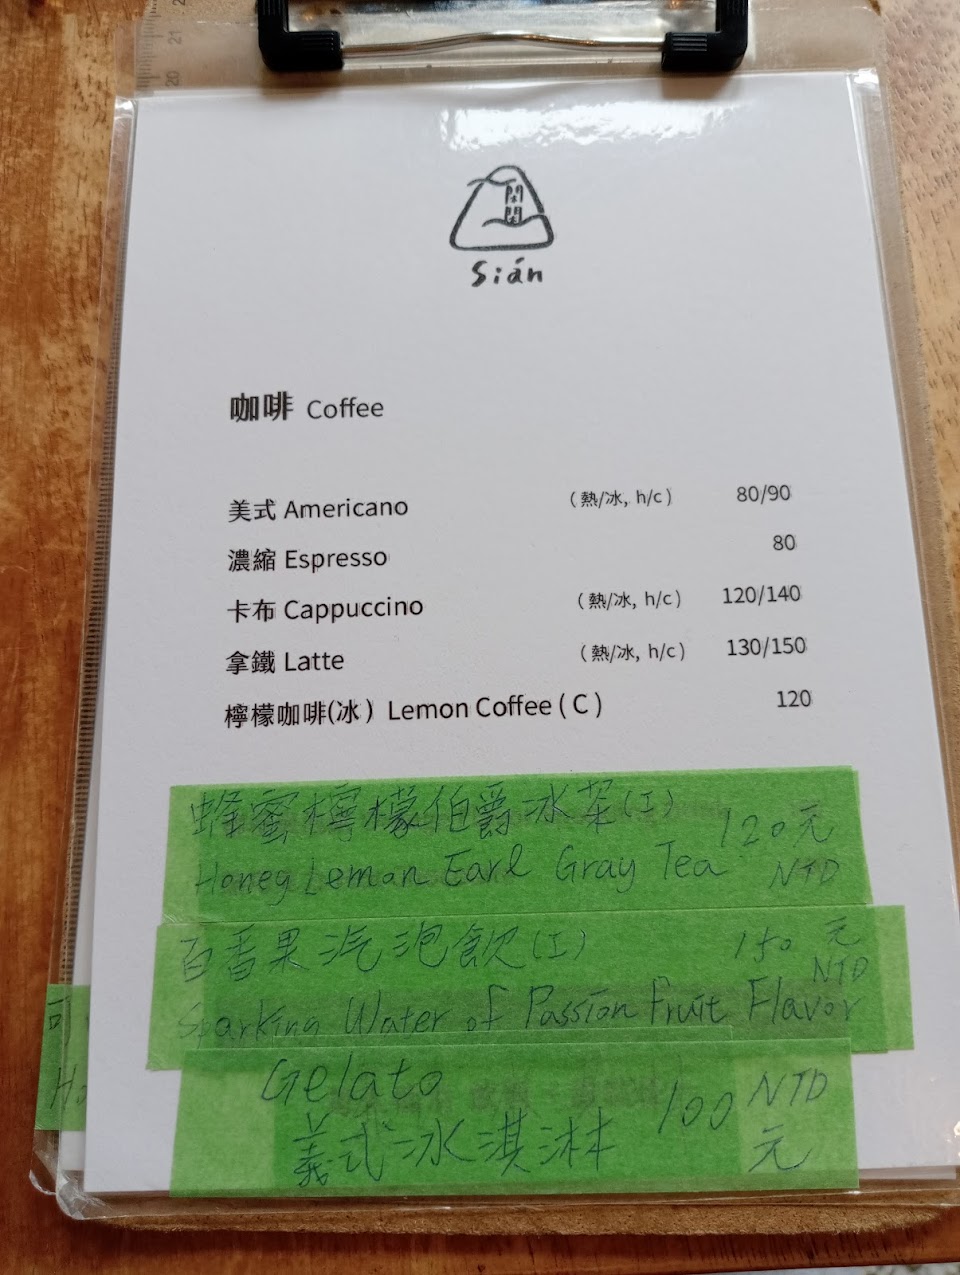 21
20
閑
閑
Sián
咖啡 Coffee
美式 Americano (熱/冰, h/c) 80/90
濃縮 Espresso 80
卡布 Cappuccino (熱/冰, h/c) 120/140
拿鐵 Latte (熱/冰, h/c) 130/150
檸檬咖啡(冰) Lemon Coffee ( C ) 120
蜂蜜檸檬伯爵冰茶(I) 120元
Honey Lemon Earl Gray Tea NTD
百香果汽泡飲(I) 150 元
NTD
Sparking Water of Passion Fruit Flavor
Gelato 100 NTD
義式冰淇淋 元